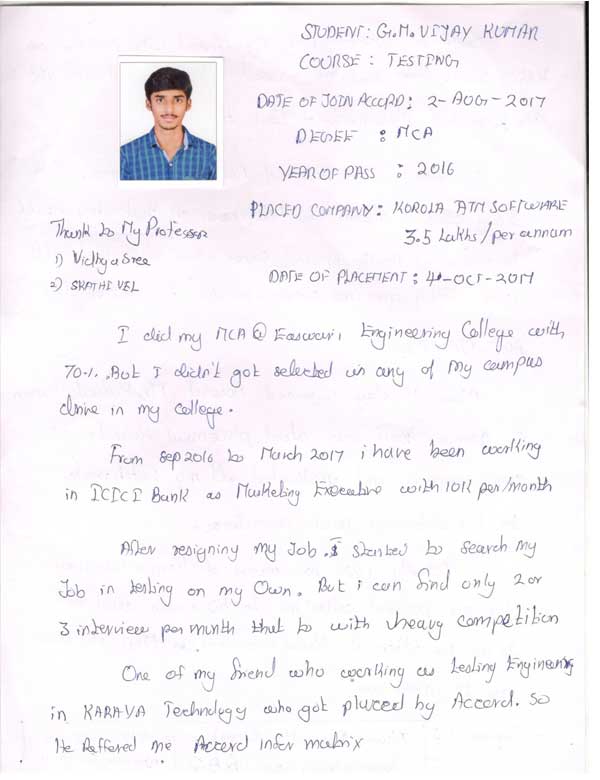 STUDENT: G.M. VIJAY KUMAR
COURSE : TESTING
DATE OF JOIN ACCORD: 2-AUG-2017
DEGEE : MCA
YEAR OF PASS : 2016
PLACED COMPANY: KOROLA ATM SOFTWARE
3.5 Lakhs/per annum
DATE OF PLACEMENT: 4-OCT-2017
Thank to My Professor
1) Vidhya Sree
2) SKATHI VEL
I did my MCA @ Easwari, Engineering College with
70%. But I didn't got selected in any of my campus
drive in my college.
From Sep 2016 to March 2017 i have been working
in ICICI Bank as Marketing Executive with 10K per/month
After resigning my Job. I started to search my
Job in testing on my own. But i can find only 2 or
3 interview per month that to with heavy competition
One of my friend who working as Testing Engineering
in KARAYA Technology who got placed by Accord. So
He Reffered me Accord infer matrix